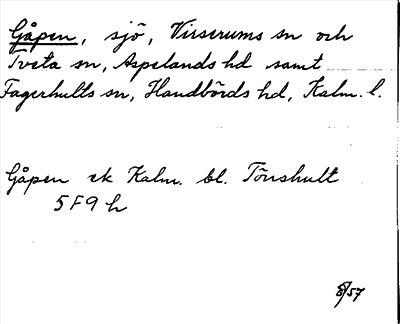 Gåpen, sjö, Virserums sn och
Tveta sn, Aspelands hd samt
Fagerhults sn, Handbörds hd, Kalm. l.
Gåpen ek Kalm. bl. Tönshult
5 F 9 h
8/57